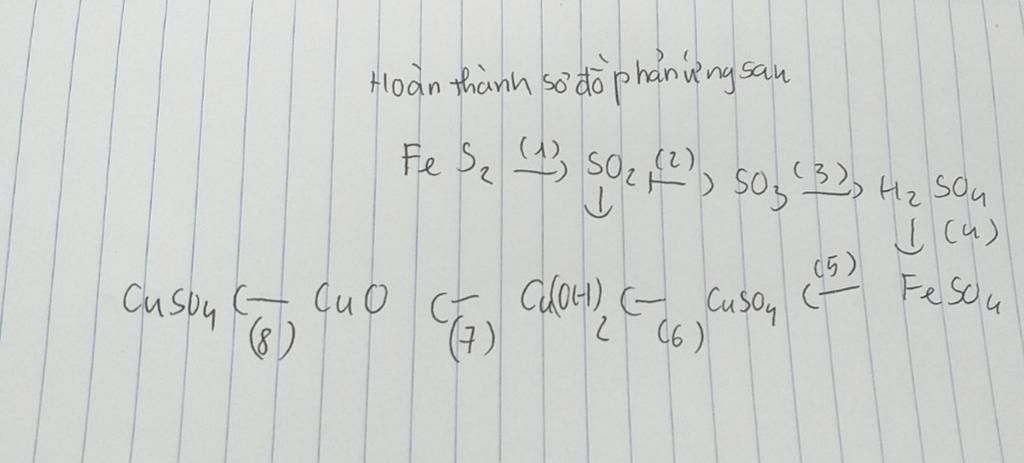 Hoàn thành sơ đồ phản ứng sau
FeS₂ (1)→ SO₂ (2)→ SO₃ (3)→ H₂SO₄
↓ ↓ (4)
CuSO₄ ← CuO ← Cu(OH)₂ ← CuSO₄ (5)← FeSO₄
(8) (7) (6)